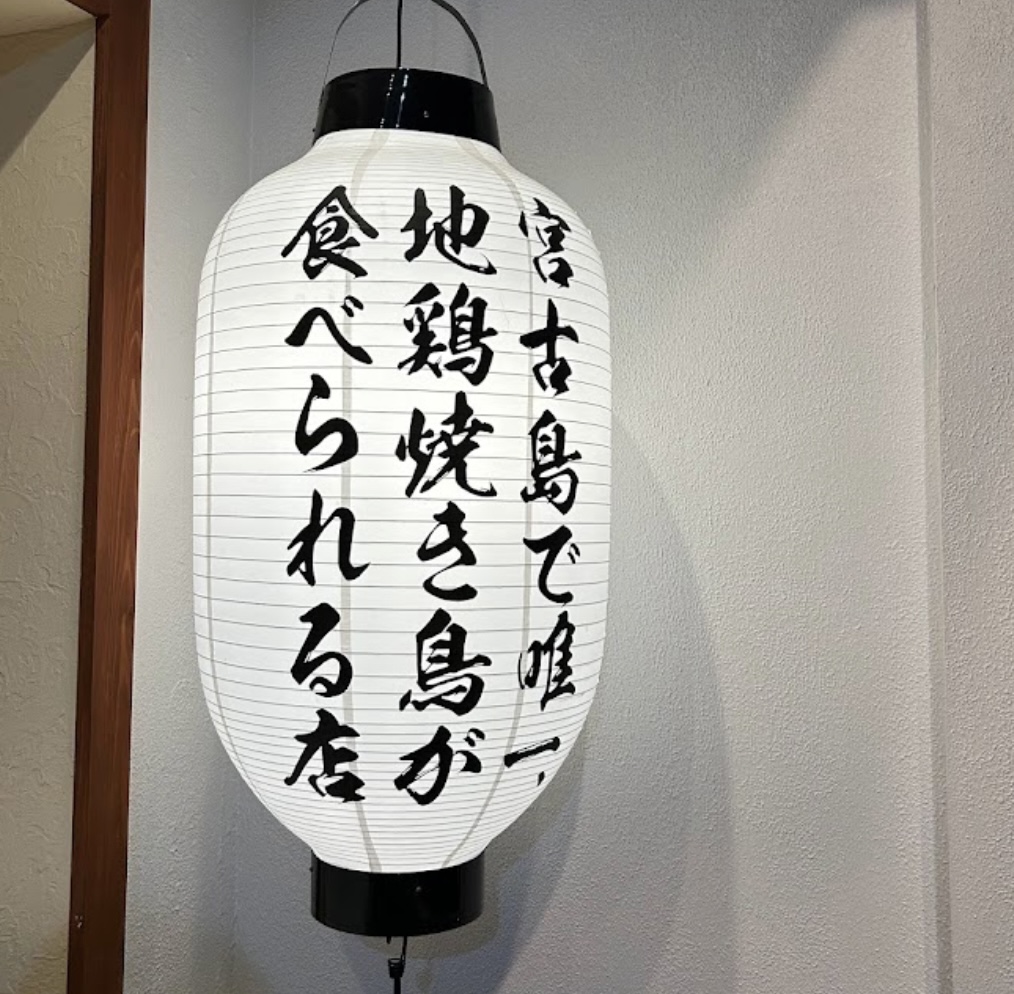 宮古島で唯一、
地鶏焼き鳥が
食べられる店